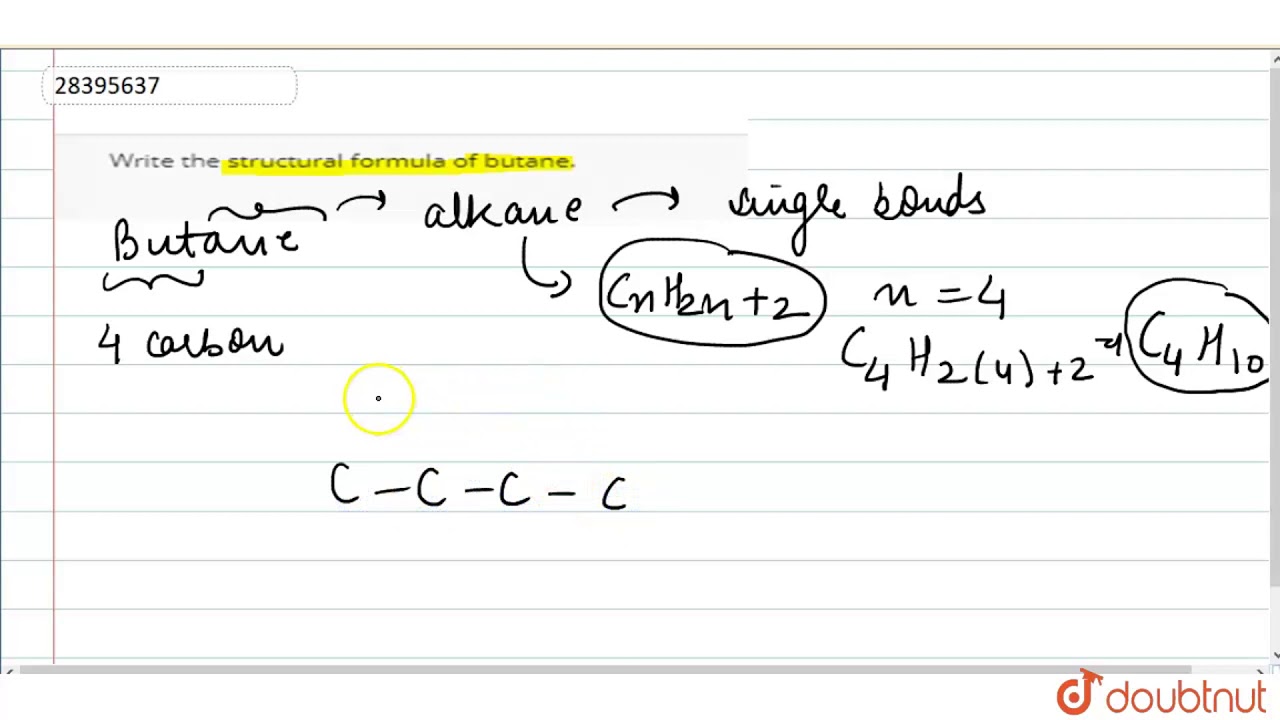 28395637
Write the structural formula of butane.
Butane → alkane → single bonds
CnH2n+2 n = 4
4 carbon C4H2(4)+2 ⇒ C4H10
C – C – C – C
doubtnut